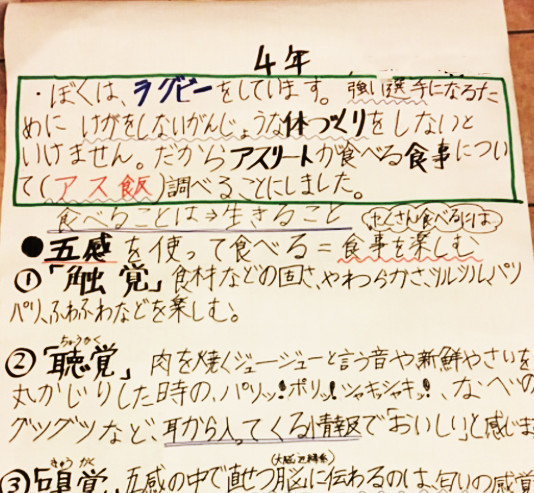 4年
・ぼくは、ラグビーをしています。強い選手になるた
めに けがをしないがんじょうな体づくりをしないと
いけません。だからアスリートが食べる食事につい
て(アス飯)調べることにしました。
食べることは→生きること たくさん食べるには
●五感を使って食べる=食事を楽しむ
①「触覚」食材などの固さ、やわらかさ、ツルツル、パリ
パリ、ふわふわなどを楽しむ。
ちょうかく
②「聴覚」 肉を焼くジュージューと言う音や新鮮やさいを
丸かじりした時の、パリッ!ポリッ!シャキシャキッ!、なべの
グツグツなど、耳から入ってくる情報で「おいしい」と感じま
きゅうかく
③「嗅覚」五感の中で直せつ脳に伝わるのは、匂いの感覚